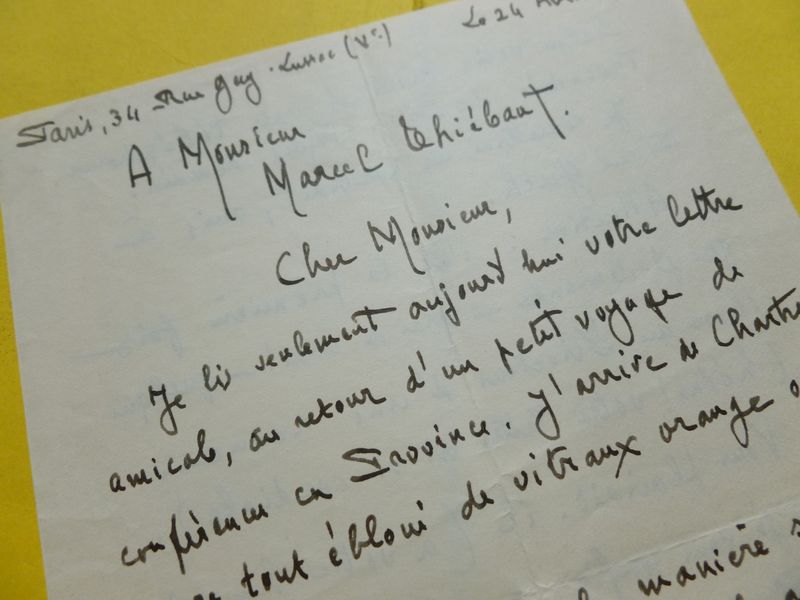 Paris, 34 Rue Gay-Lussac (Ve) Le 24
A Monsieur
Marcel Thiébaut.
Cher Monsieur,
Je lis seulement aujourd'hui votre lettre
amicale, au retour d'un petit voyage de
conférences en Province. J'arrive de Chartres
tout ébloui de vitraux orange
manière